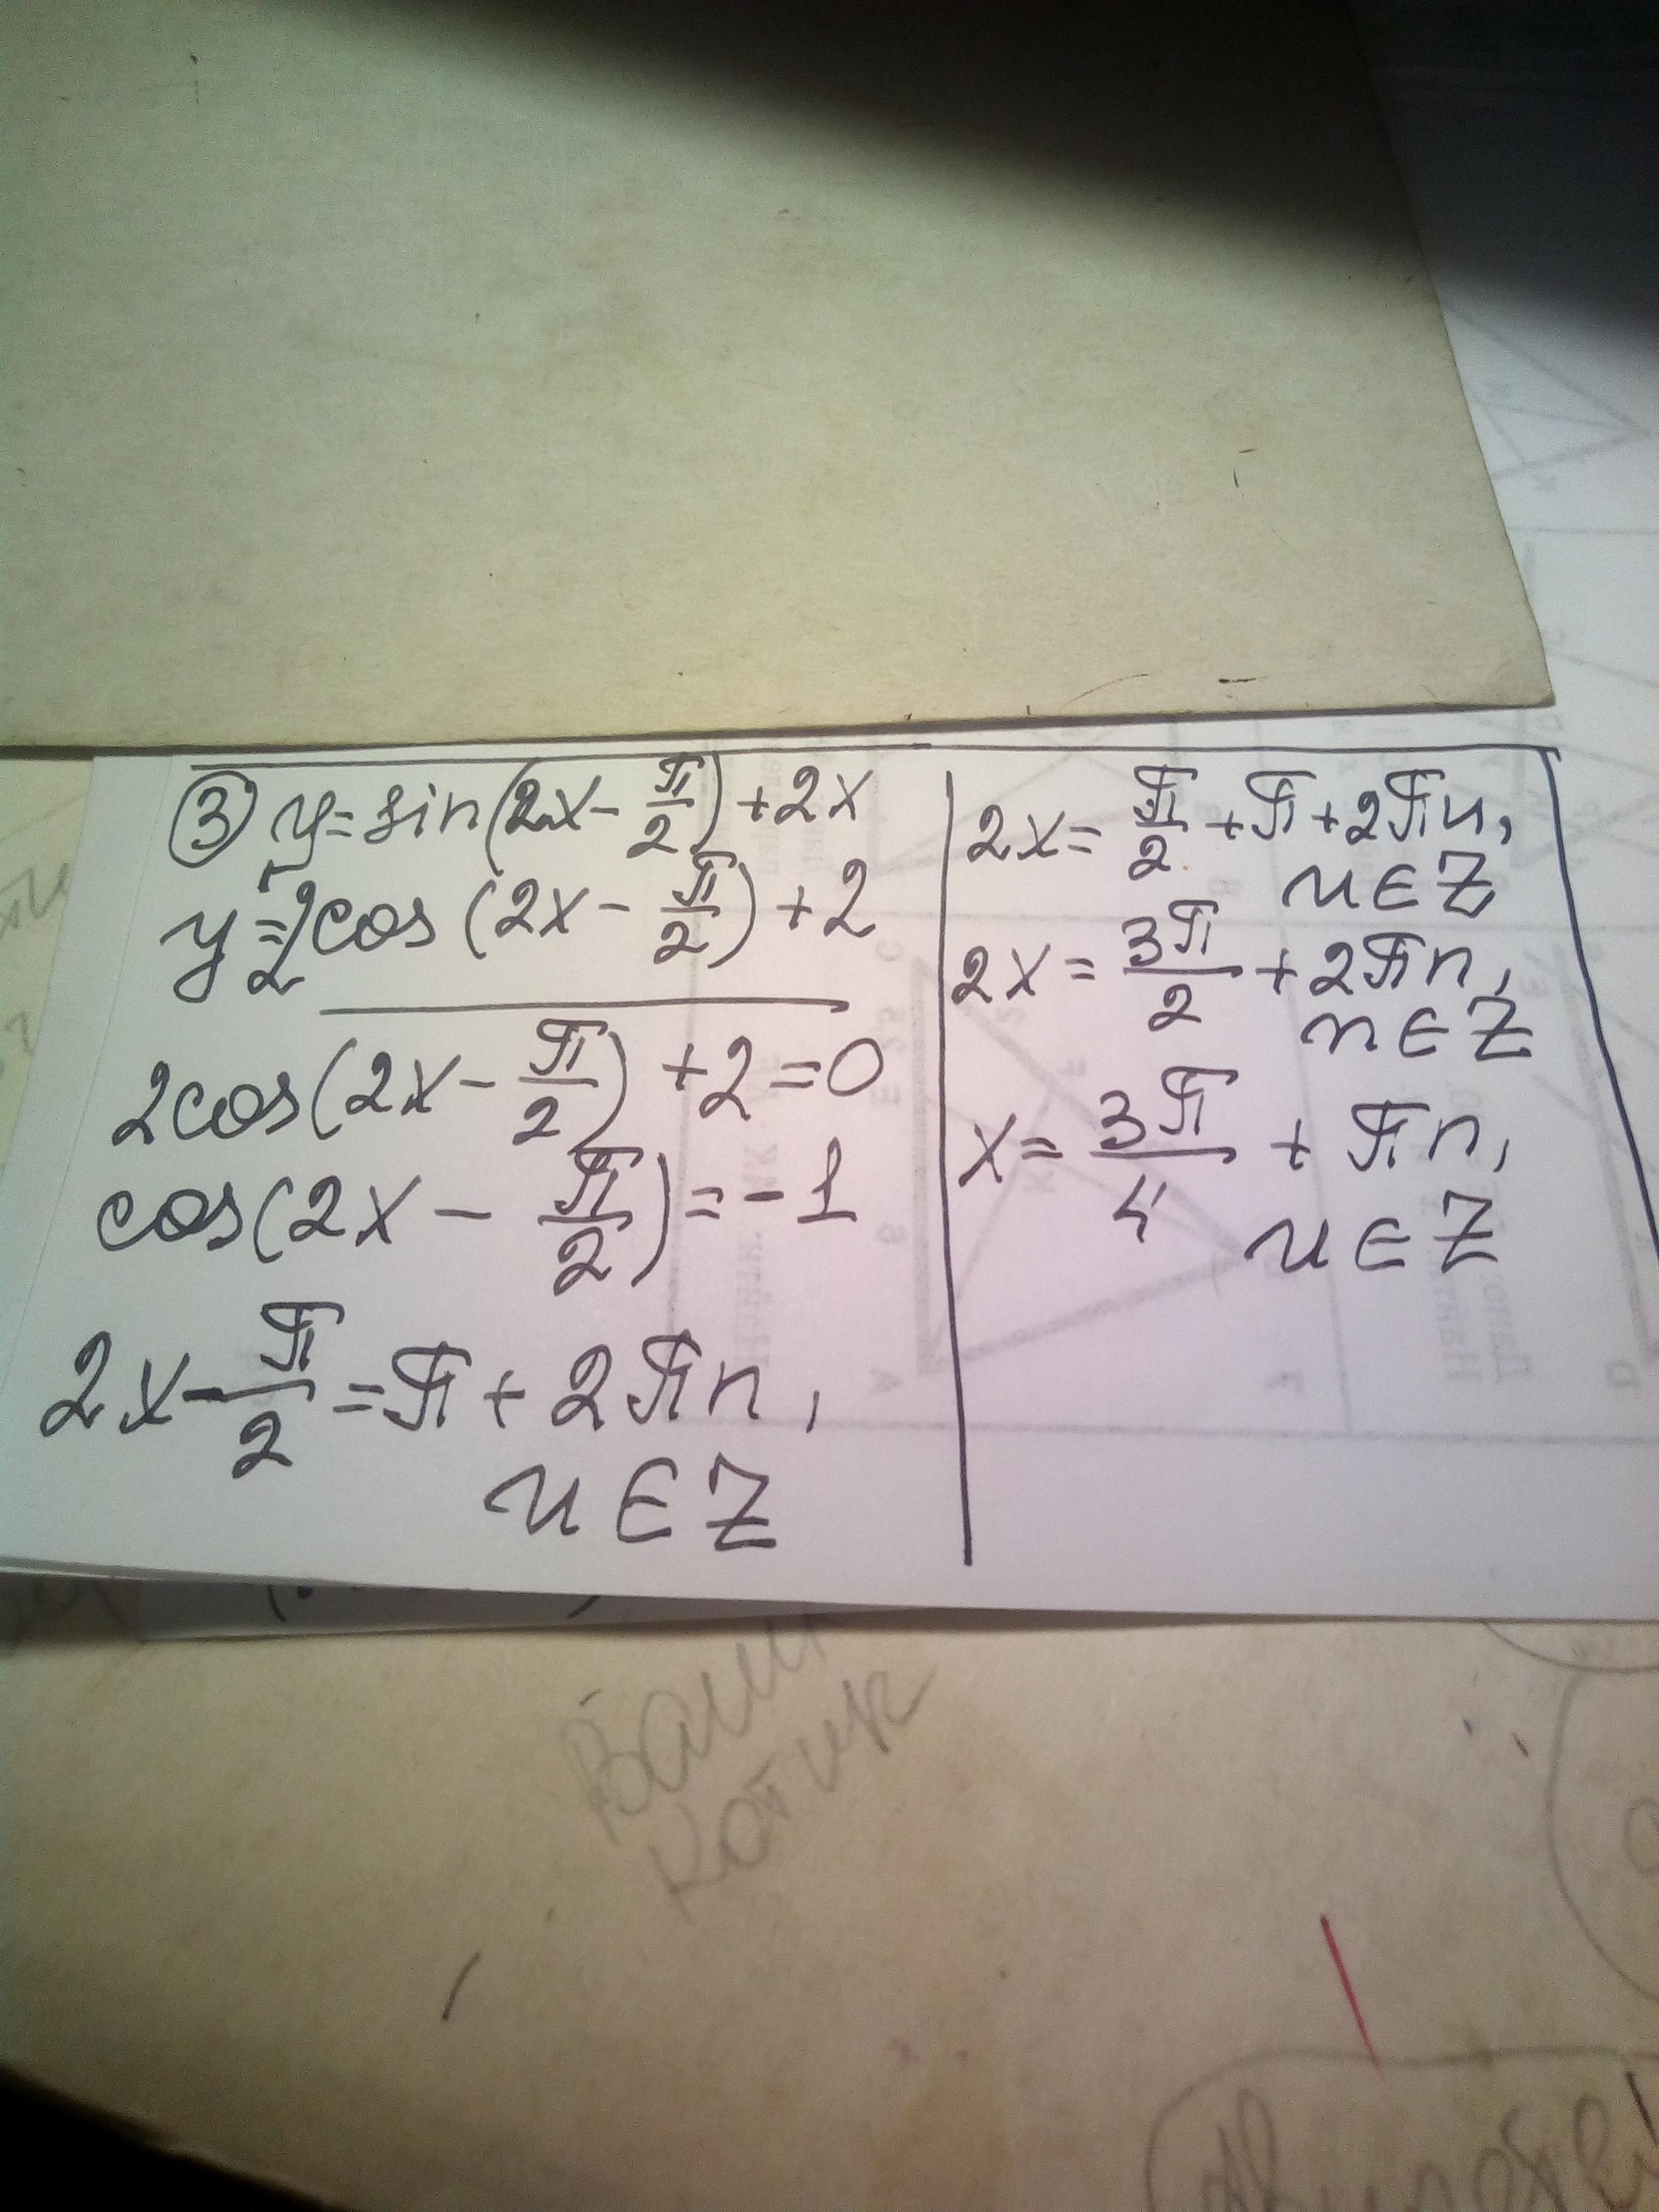 ③ y = sin(2x - π/2) + 2x
y' = 2cos(2x - π/2) + 2
2cos(2x - π/2) + 2 = 0
cos(2x - π/2) = -1
2x - π/2 = π + 2πn,
n ∈ Z
2x = π/2 + π + 2πn,
n ∈ Z
2x = 3π/2 + 2πn,
n ∈ Z
x = 3π/4 + πn,
n ∈ Z
котик